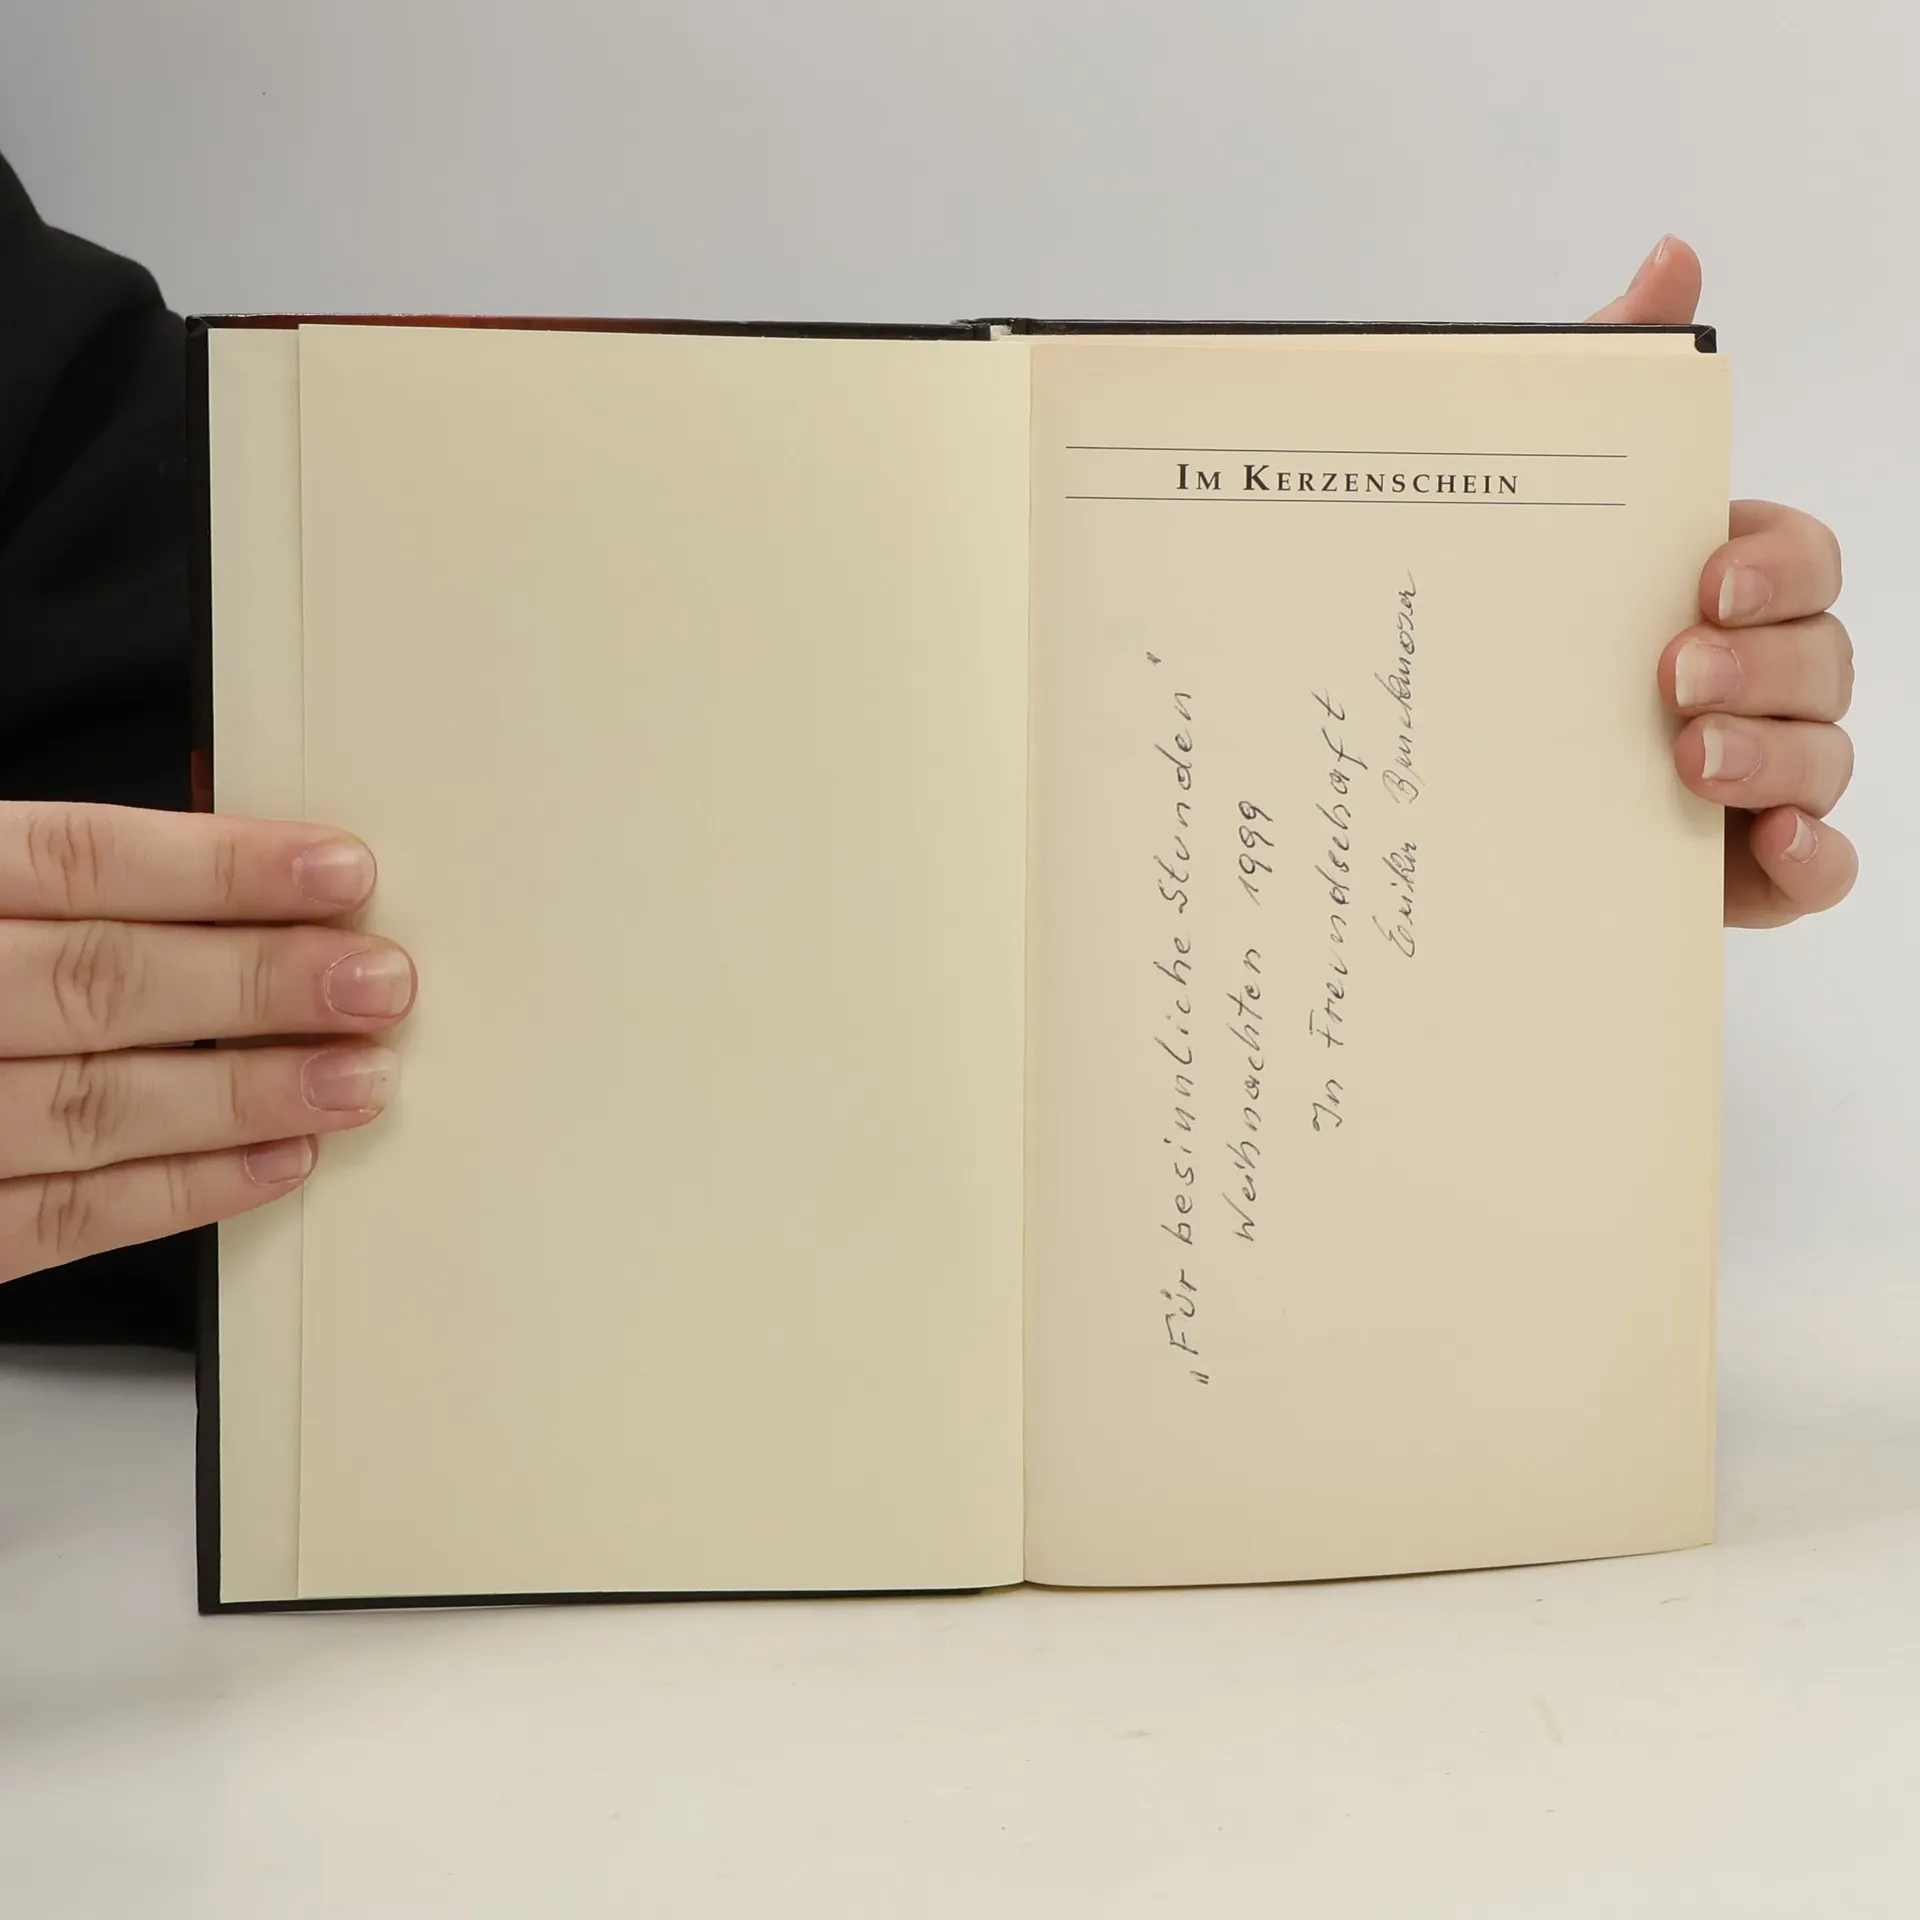 IM KERZENSCHEIN
"Für besinnliche Stunden"
Weihnachten 1999
In Freundschaft
Erika